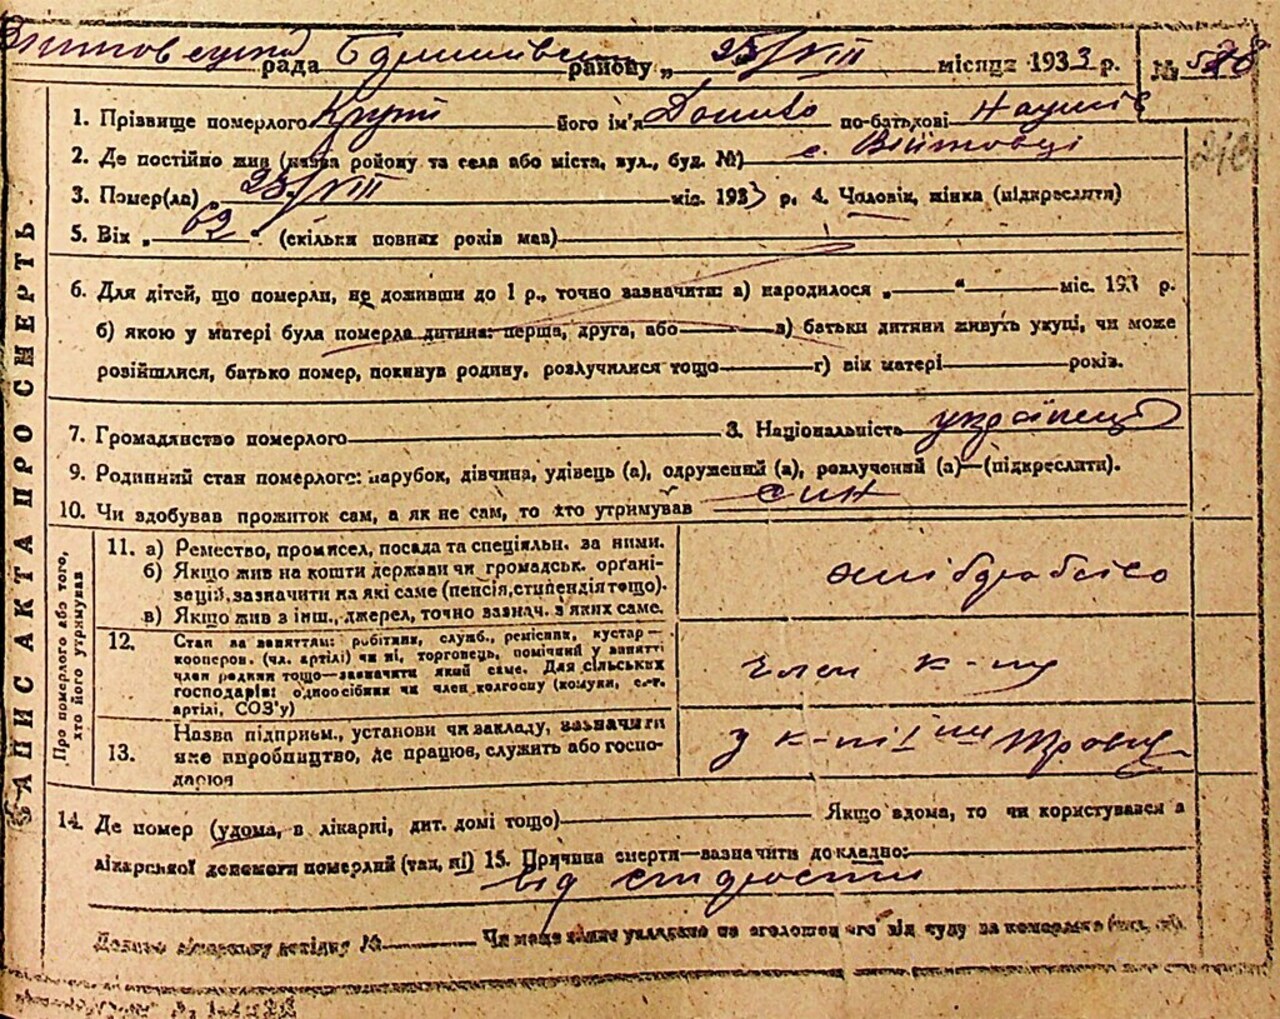 рада району „ 25/VIII місяця 1933 р. №
1. Прізвище померлого його ім'я Данило по-батькові Наумів
2. Де постійно жив (назва ройону та села або міста, вул., буд. №) с. Війтовці
3. Помер(ла) 25/VIII міс. 1933 р. 4. Чоловік, жінка (підкреслити)
5. Вік „ 62 " (скільки повних років мав)
6. Для дітей, що померли, не доживши до 1 р., точно зазначити: а) народилося „ " міс. 193 р.
б) якою у матері була померла дитина: перша, друга, або в) батьки дитини живуть укупі, чи може
розійшлися, батько помер, покинув родину, розлучилися тощо г) вік матері років.
7. Громадянство померлого 8. Національність українець
9. Родинний стан померлого: парубок, дівчина, удівець (а), одружений (а), розлучений (а)—(підкреслити).
10. Чи здобував прожиток сам, а як не сам, то хто утримував син
ЗАПИС АКТА ПРО СМЕРТЬ
Про померлого або того,
хто його утримував
11. а) Ремество, промисел, посада та спеціяльн. за ними.
б) Якщо жив на кошти держави чи громадськ. органі-
зацій, зазначити на які саме (пенсія, стипендія тощо).
в) Якщо жив з інш., джерел, точно вазнач. з яких саме.
хлібробство
12. Стан за заняттям: робітник, служб., ремісник, кустар—
кооперов. (чл. артілі) чи ні, торговець, помічний у занятті
член родини тощо—зазначити який саме. Для сільських
господарів: одноосібник чи член колгоспу (комуни, с.-г.
артілі, СОЗ'у)
член к-пу
13. Назва підприєм., установи чи закладу, зазначити
яке виробництво, де працює, служить або госпо-
дарює
у к-пі
14. Де помер (удома, в лікарні, дит. домі тощо) Якщо вдома, то чи користувався з
лікарської допомоги померлий (так, ні) 15. Причина смерти—вазначити докладно:
від старости